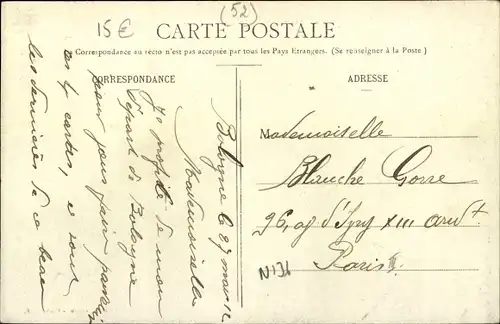 15€
(52)
CARTE POSTALE
Correspondance au recto n'est pas acceptée par tous les Pays Etrangers. (Se renseigner à la Poste)
CORRESPONDANCE
ADRESSE
Bologne le 27 mars 12
Mademoiselle
Je profite de mon
départ de Bologne
pour vous faire
les 4 cartes, ce sont
les dernières de ce
Mademoiselle
Blanche Gorre
96, d'Ivry XIII arrdt
Paris
N131